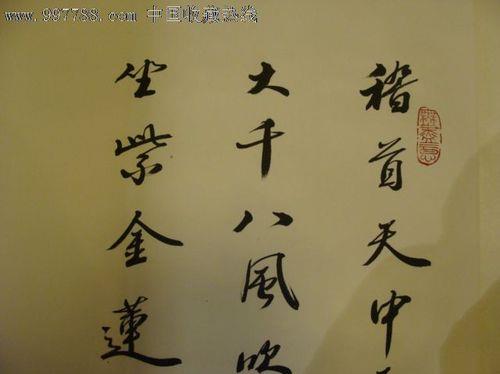 www.997788.com 中国收藏热线
稽首天中
大千八風吹
坐紫金蓮